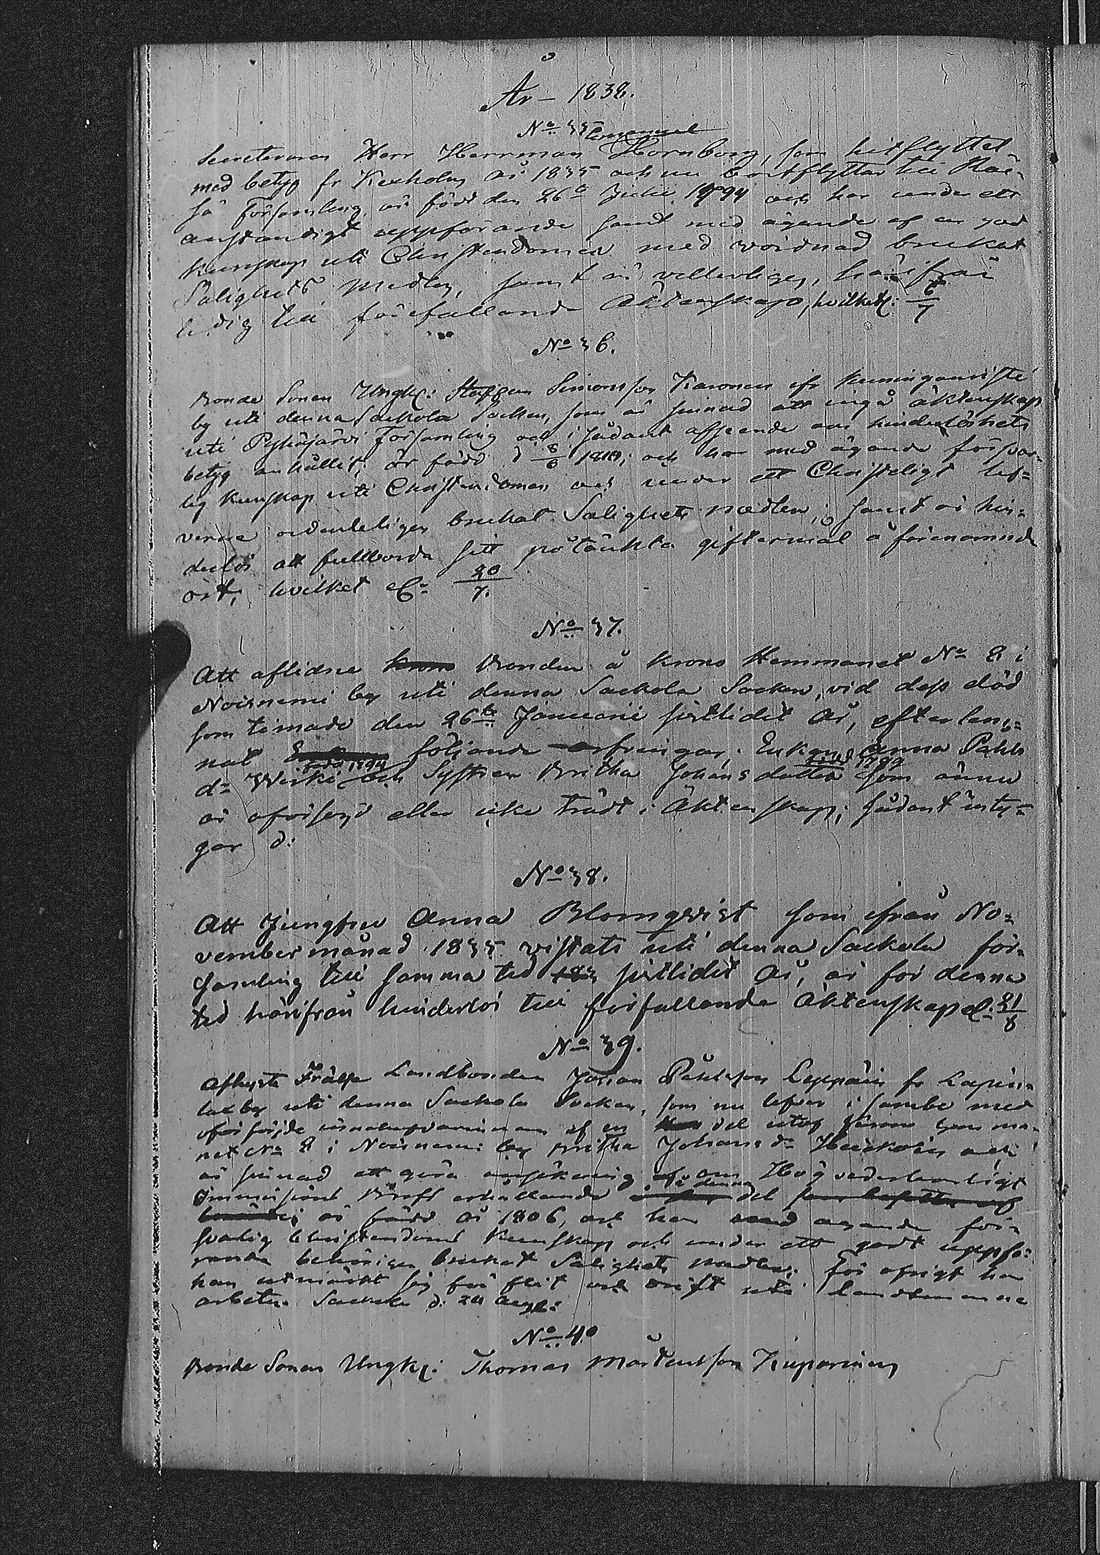 År – 1838.
No 35
Emanuel
Secreteraren Herr Herrman Hornborg, som hitflyttet
med betyg fr Kexholm år 1835 och nu bortflyttar till Räi-
sä Församling, är född den 26te Julii 1794 och har under ett
anständigt uppförande samt med ägande af en god
kunskap uti Christendomen med wördnad brukat
Salighets medlen, samt är vetterligen, härifrån
ledig till förefallande Äktenskap, hvilket: 6/7
No 36.
Bonde Sonen Ungk: Staffan Simonsson Karonen ifr
by uti denna Sackola Socken, som är sinnad att ingå äktenskap
uti Pyhäjärvi Församling och i sådant afseende om hinderlöshets
betyg anhållit, är född d 8/8 1818; och har med ägande förswar-
lig kunskap uti Christendomen och under ett Christeligt lef-
verne ordenteligen brukat Salighets medlen; samt är hin-
derlös att fullborda sitt påtänkta giftermål å förenämnde
ort, hvilket &: 20/7.
No 37.
Att aflidne krono Bonden å krono Hemmanet No 8 i
Noisniemi by uti denna Sackola Socken, vid dess död
som timade den 26te Januarii sistlidit år, efterlem-
nat följande arfvingar: Enkan Anna Pahls
född 1794 född 1792
dr Wirki och Systren Britha Johansdotter som ännu
är oförsörgd eller icke trädt i Äktenskap; sådant inty-
gar d:
No 38.
Att Jungfru Anna Blomqvist som ifrån No-
vember månad 1835 vistats uti denna Sackola för-
samling till samma tid 183 sistlidit år, är för denna
tid härifrån hinderlös till förfallande Äktenskap &: 21/8
No 39.
Afhyste Frälse Landbonden Johan Påhlsson Leppäin fr Lapin-
lax by uti denna Sackola Socken, som nu lefver i sambo med
oförsörjde innehafvarinnan af en del utaf krono hemma-
net No 8 i Noisniemi by Britha Johans dr och
är sinnad att göra ansökning om Högvederbörligt
Immissions Bref erhållande å denna del
är född år 1806, och har med ägande för-
svarlig Christendoms kunskap och under ett godt uppfö-
rande behörigen brukat Salighets medlen; för öfrigt har
han utmärkt sig för flit och drift uti landtmanna
arbeten. Sackola d: 24 Aug:
No 40
Bonde Sonen Ungk: Thomas Mårtensson Kuparinen